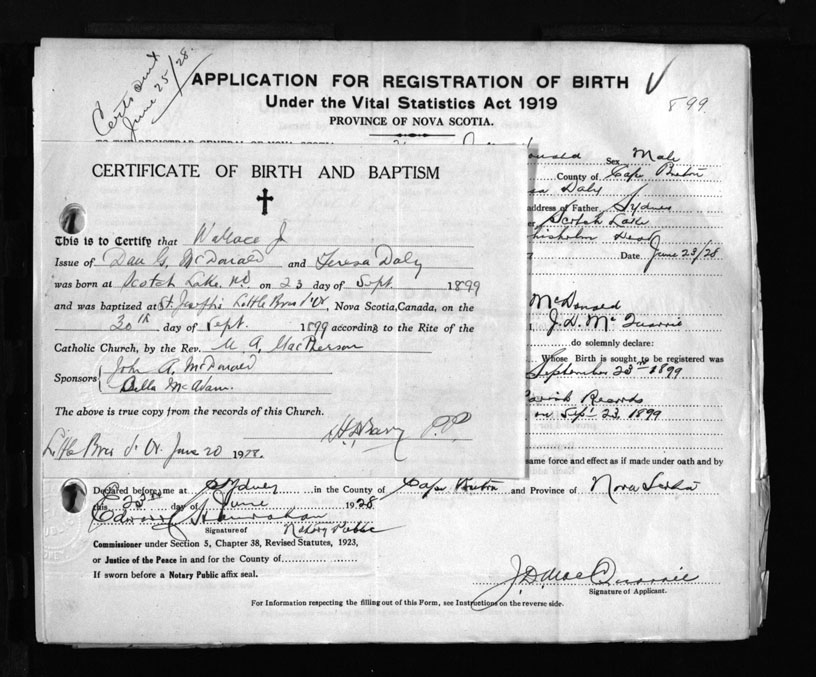 Certs sent
June 25/28.
APPLICATION FOR REGISTRATION OF BIRTH
Under the Vital Statistics Act 1919
PROVINCE OF NOVA SCOTIA.
899
onald Sex Male
County of Cape Breton
sa Daly
address of Father, Sydney
Scotch Lake
hisholm Dead
Date June 23/28
CERTIFICATE OF BIRTH AND BAPTISM
This is to Certify that Wallace J
Issue of Dan G. McDonald and Teresa Daly
was born at Scotch Lake, on 23 day of Sept. 1899
and was baptized at St Joseph's Little Bras d'Or, Nova Scotia, Canada, on the
30th day of Sept. 1899 according to the Rite of the
Catholic Church, by the Rev. M. A. MacPherson
Sponsors John A. McDonald
Bella McAdam.
The above is true copy from the records of this Church.
P.P.
Little Bras d'Or. June 20 1928.
McDonald
I, J. D. McQuarrie
do solemnly declare:
Whose Birth is sought to be registered was
September 23rd 1899
Parish Records
on Sept 23, 1899
same force and effect as if made under oath and by
Declared before me at Sydney in the County of Cape Breton and Province of Nova Scotia
this 23rd day of June 1928
Signature of Notary Public
Commissioner under Section 5, Chapter 38, Revised Statutes, 1923,
or Justice of the Peace in and for the County of
If sworn before a Notary Public affix seal.
J. D. MacQuarrie
Signature of Applicant.
For Information respecting the filling out of this Form, see Instructions on the reverse side.